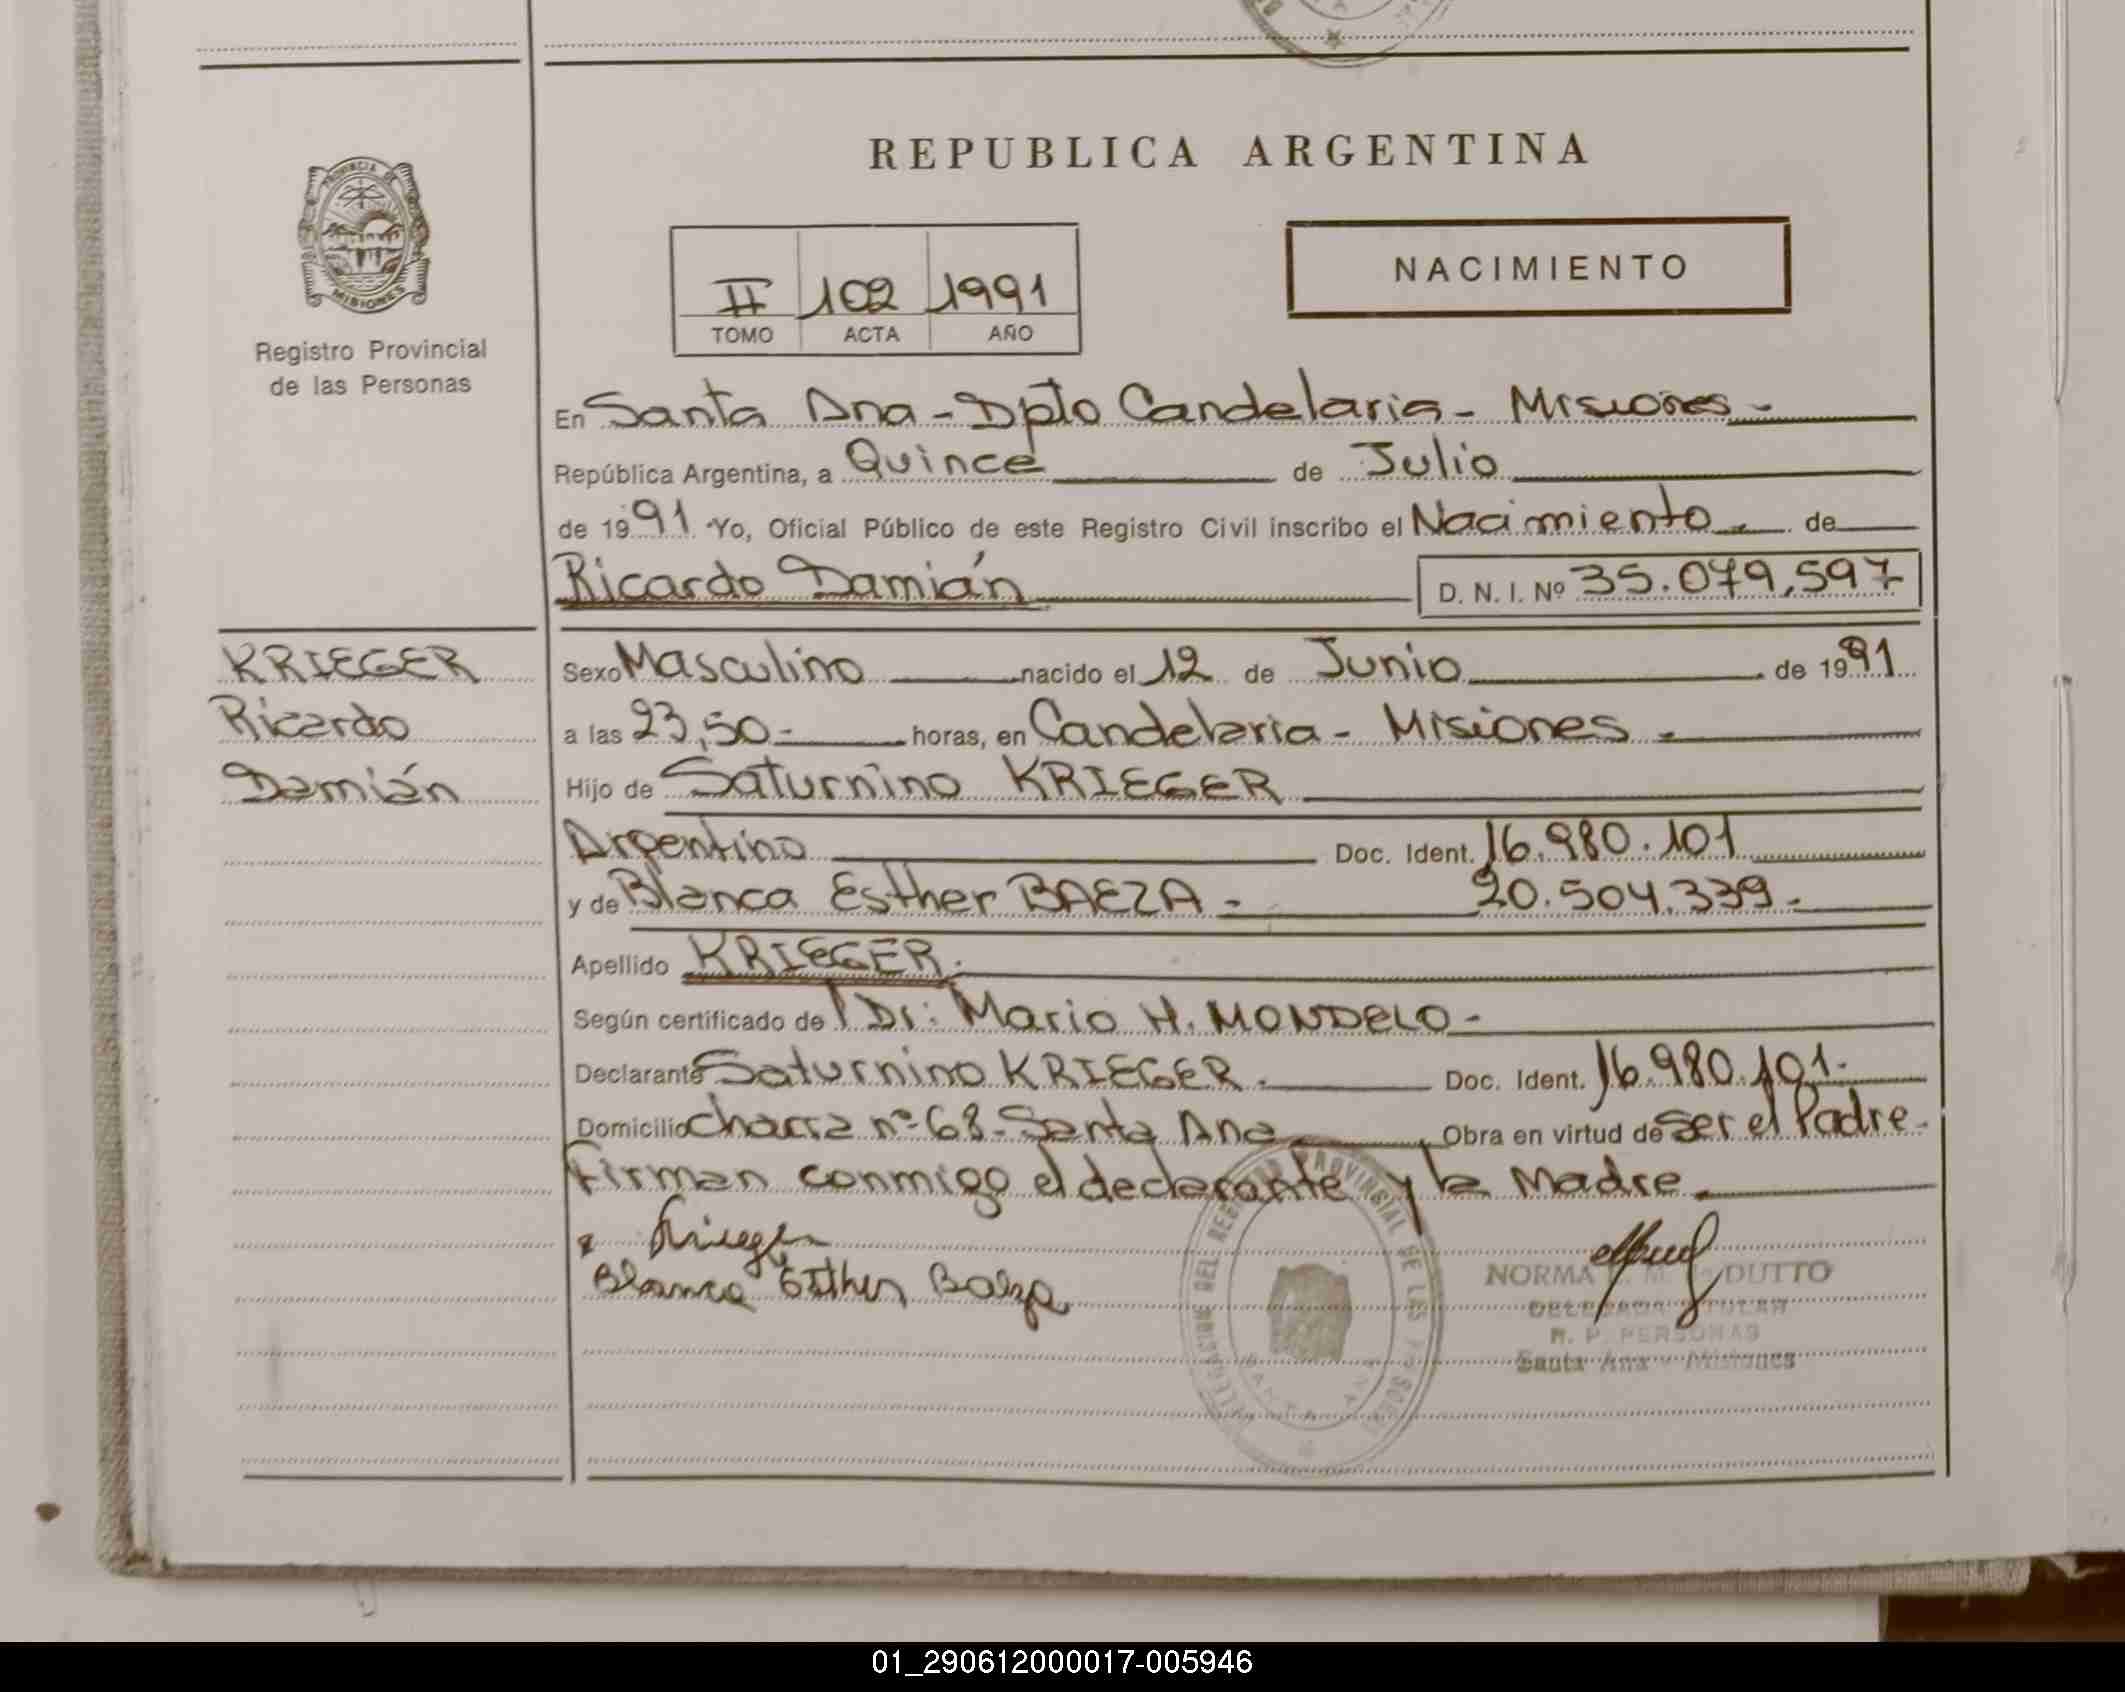 REPUBLICA ARGENTINA
PROVINCIA DE
MISIONES
Registro Provincial
de las Personas
II 102 1991
TOMO ACTA AÑO
NACIMIENTO
En Santa Ana - Dpto Candelaria - Misiones -
República Argentina, a Quince de Julio
de 1991 Yo, Oficial Público de este Registro Civil inscribo el Nacimiento - de
Ricardo Damián D. N. I. Nº 35.079,597
KRIEGER
Ricardo
Damián
Sexo Masculino nacido el 12 de Junio de 1991
a las 23,50 - horas, en Candelaria - Misiones -
Hijo de Saturnino KRIEGER
Argentino Doc. Ident. 16.980.101
y de Blanca Esther BAEZA - 20.504.339 -
Apellido KRIEGER.
Según certificado de l Dr: Mario H. MONDELO -
Declarante Saturnino KRIEGER. Doc. Ident. 16.980.101.
Domicilio chacra nº 68 - Santa Ana Obra en virtud de ser el Padre -
Firman conmigo el declarante y la Madre.
Krieger
Blanca Esther Baeza
DELEGACION DEL REGISTRO PROVINCIAL DE LAS PERSONAS
SANTA ANA
NORMA M. DUTTO
DELEGADA TITULAR
R. P. PERSONAS
Santa Ana - Misiones
01_290612000017-005946